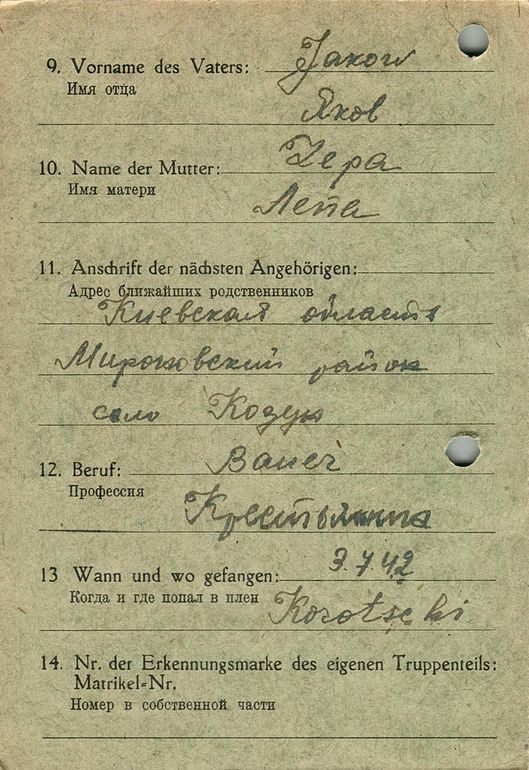 9. Vorname des Vaters: Jakow
Имя отца
Яков
10. Name der Mutter: Lepa
Имя матери
Лепа
11. Anschrift der nächsten Angehörigen:
Адрес ближайших родственников
Киевская область
Мироновский район
село Козун
12. Beruf: Bauer
Профессия
Крестьянин
13 Wann und wo gefangen: 3.7.42
Когда и где попал в плен Korotschi
14. Nr. der Erkennungsmarke des eigenen Truppenteils:
Matrikel-Nr.
Номер в собственной части